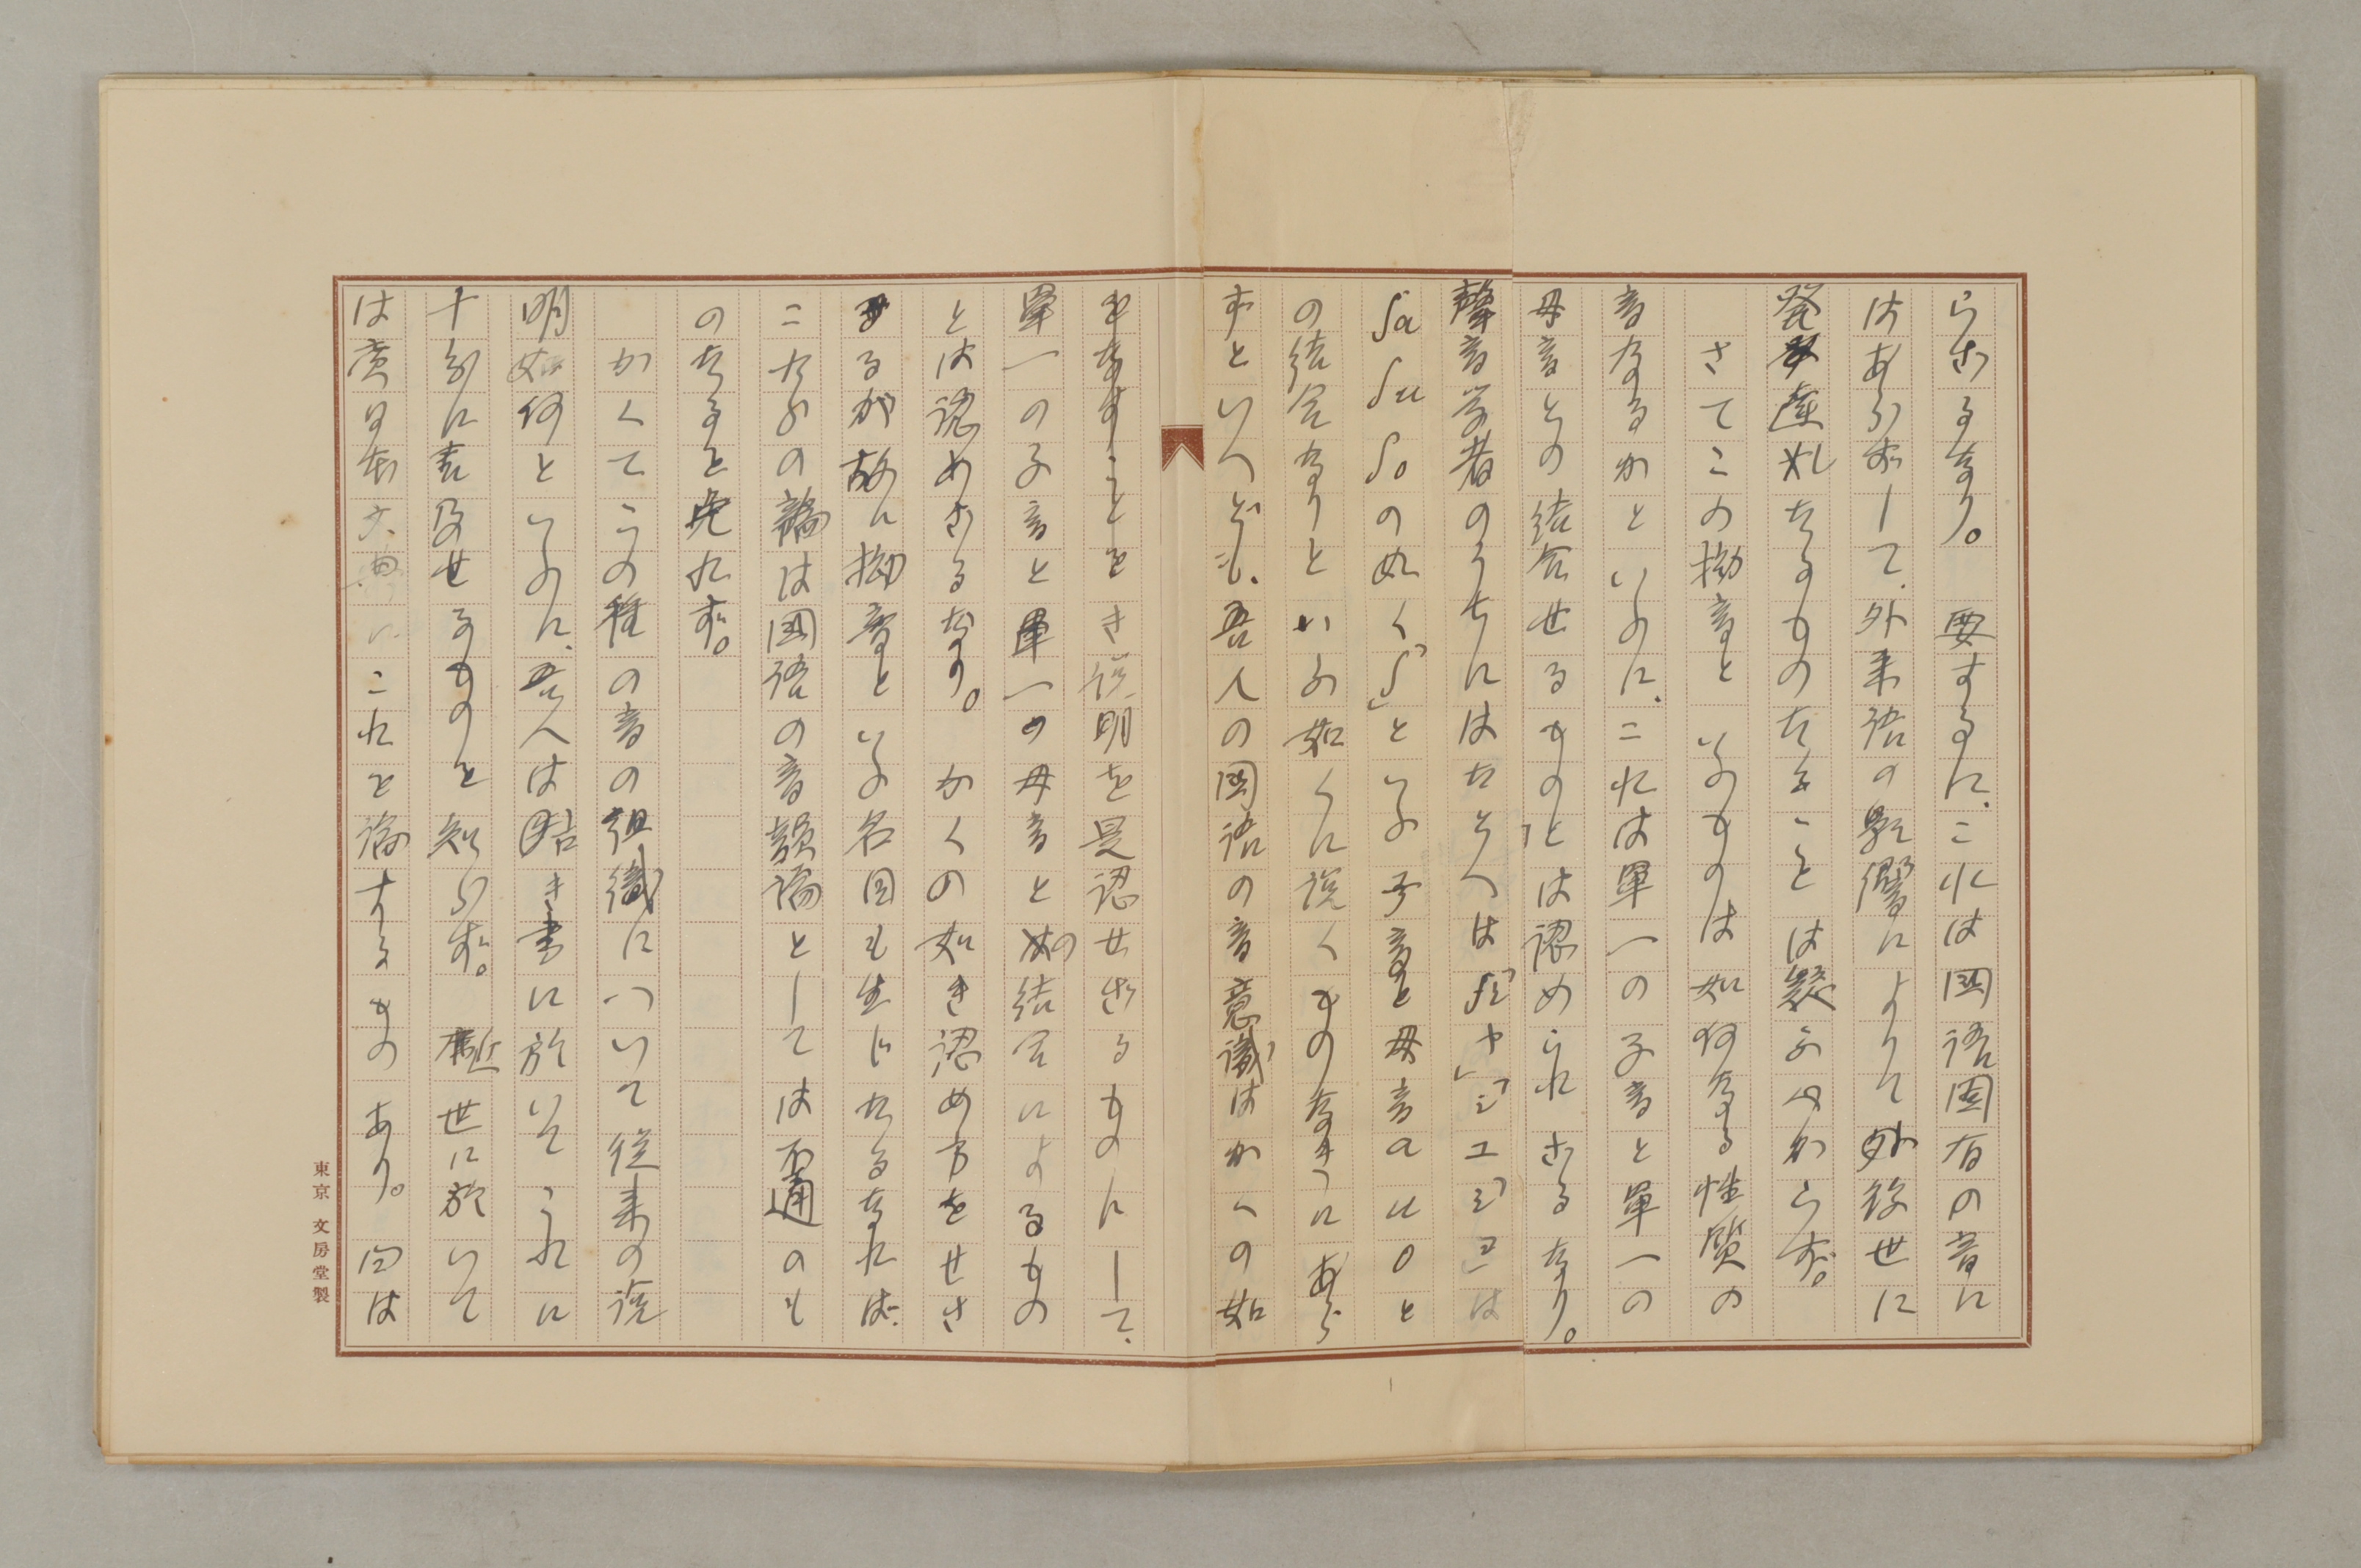 らざるなり。要するに、これは国語固有の音に
はあらずして、外来語の影響によりて後世に
発達したるものたることは疑ふべからず。
さてこの拗音といふものは如何なる性質の
音なるかといふに、これは単一の子音と単一の
母音との結合せるものとは認められざるなり。
聲音学者のうちにはたとへば「シャ」「シュ」「ショ」は
ʃa ʃu ʃo の如く「ʃ」といふ子音と母音 a u o と
の結合なりといふ如くに説くものなきにあら
ずといへども、吾人の国語の音意識はかくの如
きことをき説明を是認せざるものにして、
単一の子音と単一の母音との結合によるもの
とは認めざるなり。かくの如き認め方をせざ
るが故に拗音といふ名目も生じたるなれば、
これらの論は国語の音韻論としては不通のも
のたると免れず。
かくてこの種の音の組織について従来の説
明如何といふに、吾人は古き書に於いてこれに
十分に言及せるものを知らず。近世に於いて
は廣日本文典にこれを論ずるものあり。曰は
東京 文房堂製